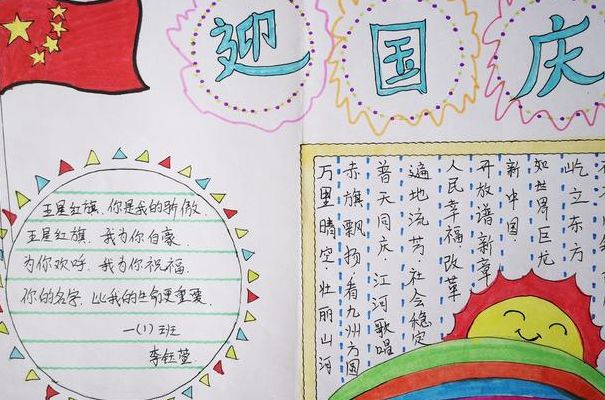 迎国庆
五星红旗，你是我的骄傲．
五星红旗．我为你自豪
为你欢呼．我为你祝福．
你的名字．比我的生命更重要．
一（1）班
李钰
万里晴空·壮丽山河
赤旗飘扬·看九州方圆
普天同庆 江河歌唱
遍地流芳 社会稳定
人民幸福改革
开放谱新章
新中国
如世界巨龙
屹立东方